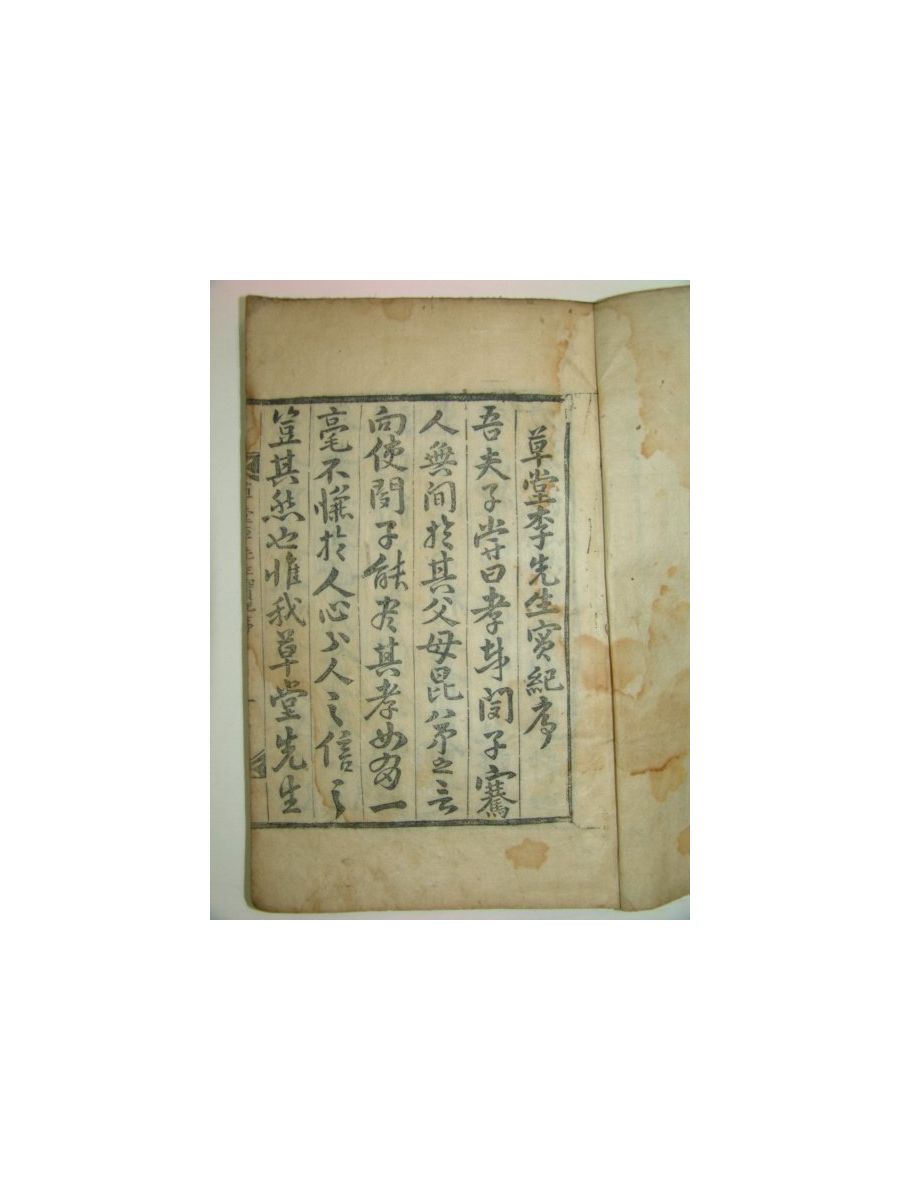 草堂李先生實紀序
吾夫子嘗曰孝哉閔子騫
人無間於其父母昆弟之言
向使閔子能孝其孝如有一
毫不慊於人心則人之信之
豈其然也惟我草堂先生